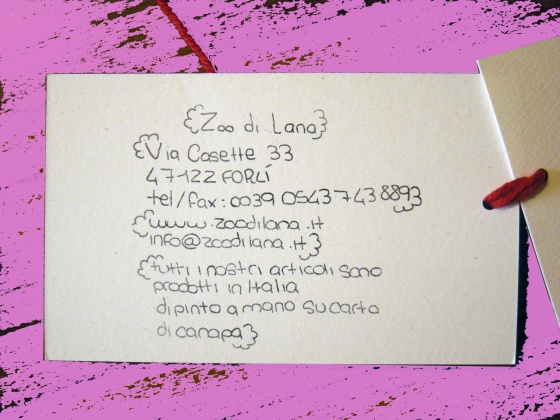 {Zoo di Lana}
{Via Casette 33
47122 FORLÍ
tel/fax: 0039 0543 743 8893}
{www.zoodilana.it
info@zoodilana.it}
{tutti i nostri articoli sono
prodotti in Italia
dipinto a mano su carta
di canapa}